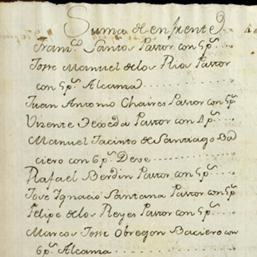 Suma de enfrente
Fran.co Santos Pastor con 5 p.s
Jose Manuel de los Rios Pastor
con 5 p.s Alcama
Juan Antonio Chaires Pastor con 5 p.s
Vizente Pastor con 4 p.s
Manuel Jacinto de Santiago Ba
ciero con 6 p.s Dese
Rafael Berdin Pastor con 5 p.s
Jose Ignacio Santana Pastor con 5 p.s
Felipe de los Reyes Pastor con 5 p.s
Marcos Jose Obregon Baciero con
6 p.s Alcama